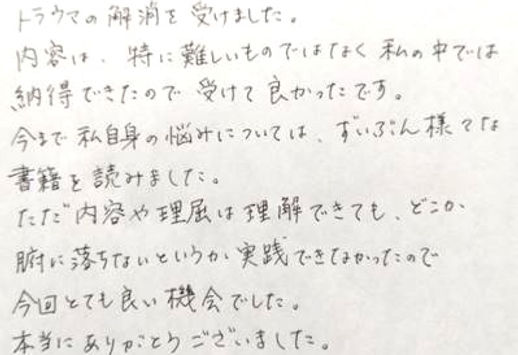 トラウマの解消を受けました。
内容は、特に難しいものではなく私の中では
納得できたので受けて良かったです。
今まで私自身の悩みについては、ずいぶん様々な
書籍を読みました。
ただ内容や理屈は理解できても、どこか
腑に落ちないというか実践できなかったので
今回とても良い機会でした。
本当にありがとうございました。